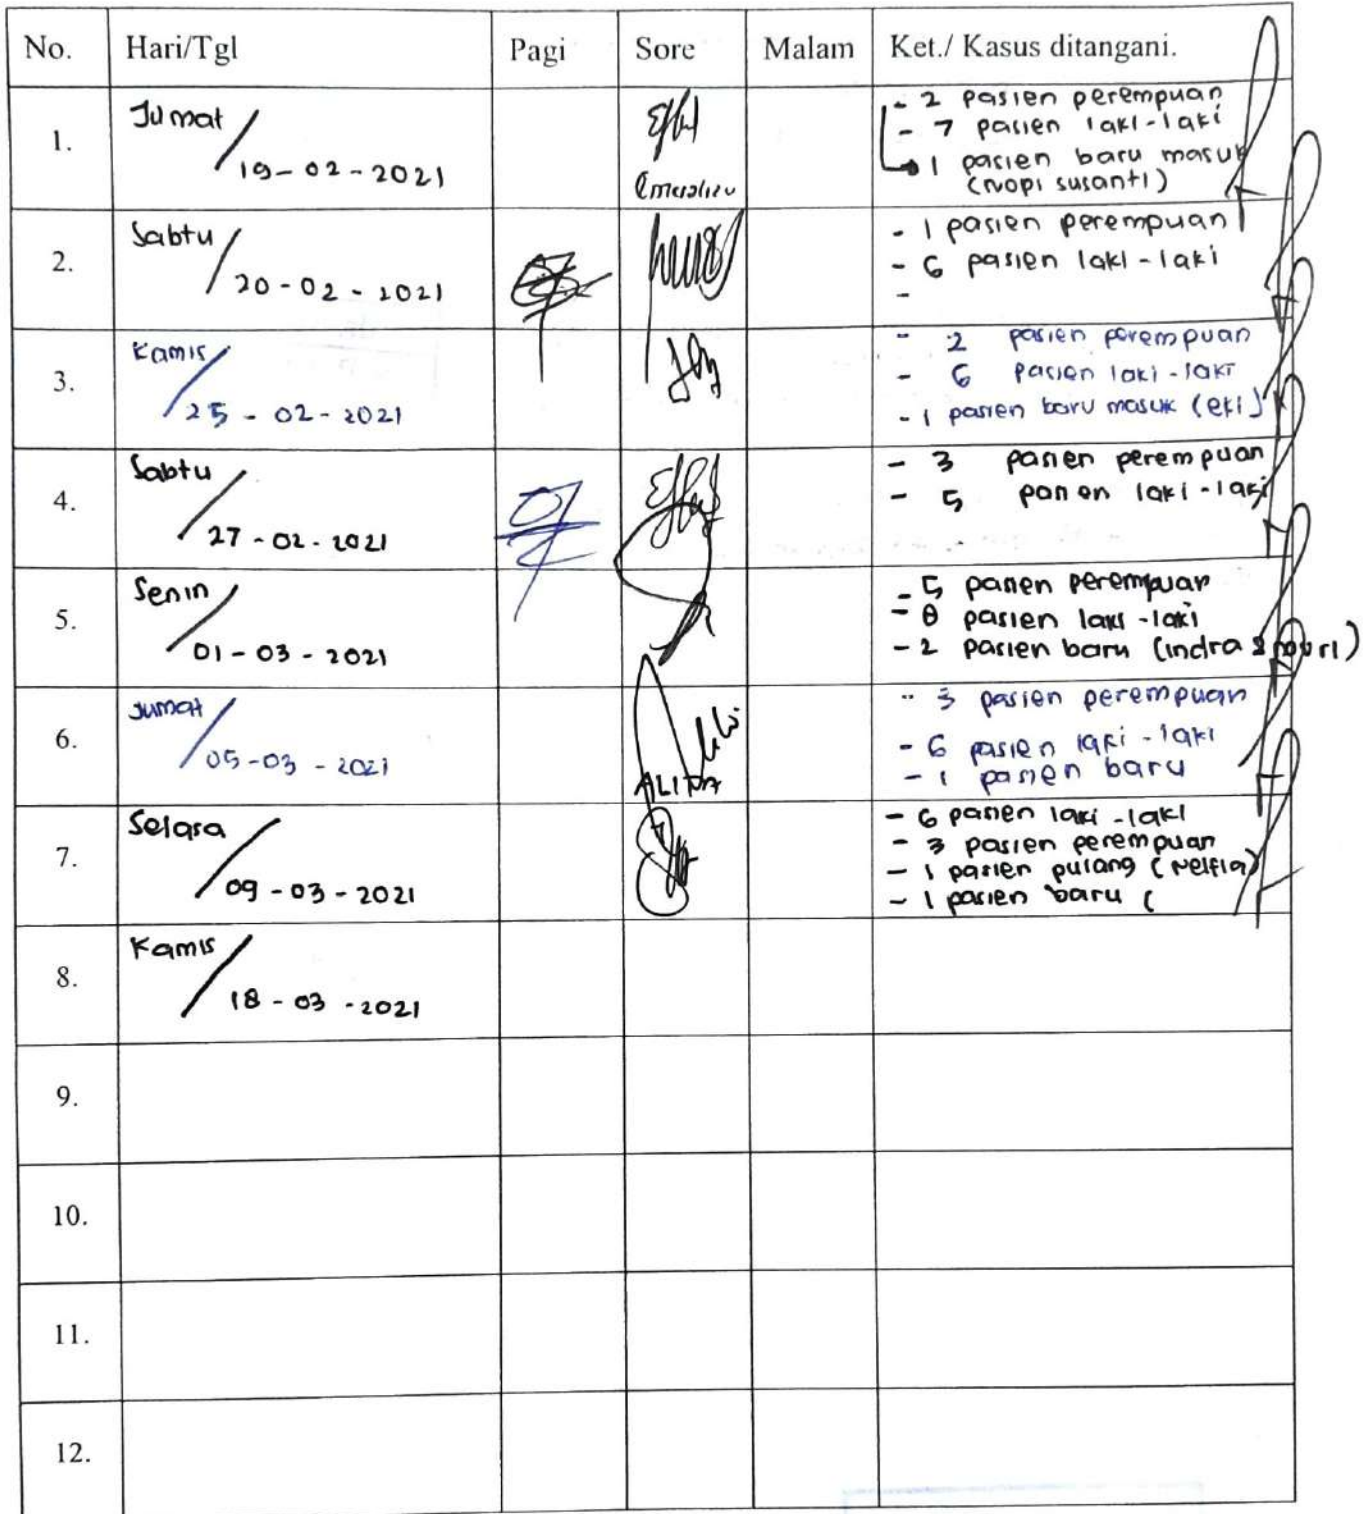 No. Hari/Tgl Pagi Sore Malam Ket./ Kasus ditangani.
1. Jumat / 19-02-2021
- 2 pasien perempuan
- 7 pasien laki-laki
1 pasien baru masuk
(Nopi susanti)
2. Sabtu / 20-02-2021
- 1 pasien perempuan
- 6 pasien laki-laki
-
3. Kamis / 25-02-2021
- 2 pasien perempuan
- 6 pasien laki-laki
- 1 pasien baru masuk (eki)
4. Sabtu / 27-02-2021
- 3 pasien perempuan
- 5 pasien laki-laki
5. Senin / 01-03-2021
- 5 pasien perempuan
- 8 pasien laki-laki
- 2 pasien baru (indra &
6. Jumat / 05-03-2021
ALITA
- 3 pasien perempuan
- 6 pasien laki-laki
- 1 pasien baru
7. Selasa / 09-03-2021
- 6 pasien laki-laki
- 3 pasien perempuan
- 1 pasien pulang (Nelfia)
- 1 pasien baru (
8. Kamis / 18-03-2021
9.
10.
11.
12.